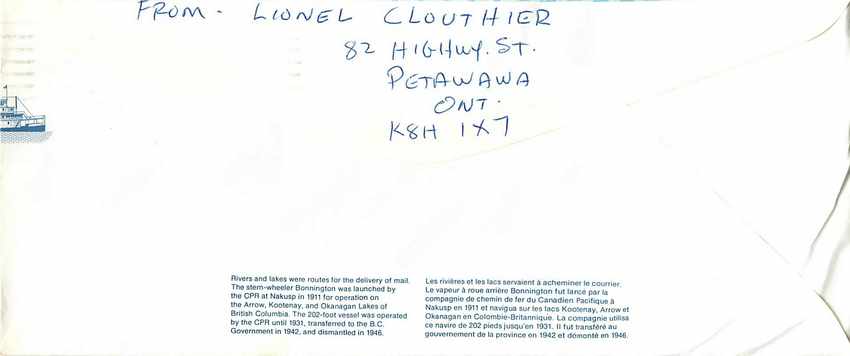 FROM - LIONEL CLOUTHIER
82 HIGHWY. ST.
PETAWAWA
ONT.
K8H 1X7
Rivers and lakes were routes for the delivery of mail.
The stern-wheeler Bonnington was launched by
the CPR at Nakusp in 1911 for operation on
the Arrow, Kootenay, and Okanagan Lakes of
British Columbia. The 202-foot vessel was operated
by the CPR until 1931, transferred to the B.C.
Government in 1942, and dismantled in 1946.
Les rivières et les lacs servaient à acheminer le courrier.
Le vapeur à roue arrière Bonnington fut lancé par la
compagnie de chemin de fer du Canadien Pacifique à
Nakusp en 1911 et navigua sur les lacs Kootenay, Arrow et
Okanagan en Colombie-Britannique. La compagnie utilisa
ce navire de 202 pieds jusqu'en 1931. Il fut transféré au
gouvernement de la province en 1942 et démonté en 1946.